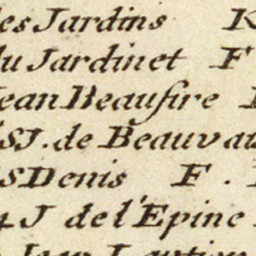 les Jardins K
du Jardinet F
Jean Beausire
SJ. de Beauvau
S Denis F.
4 J de l'Epine